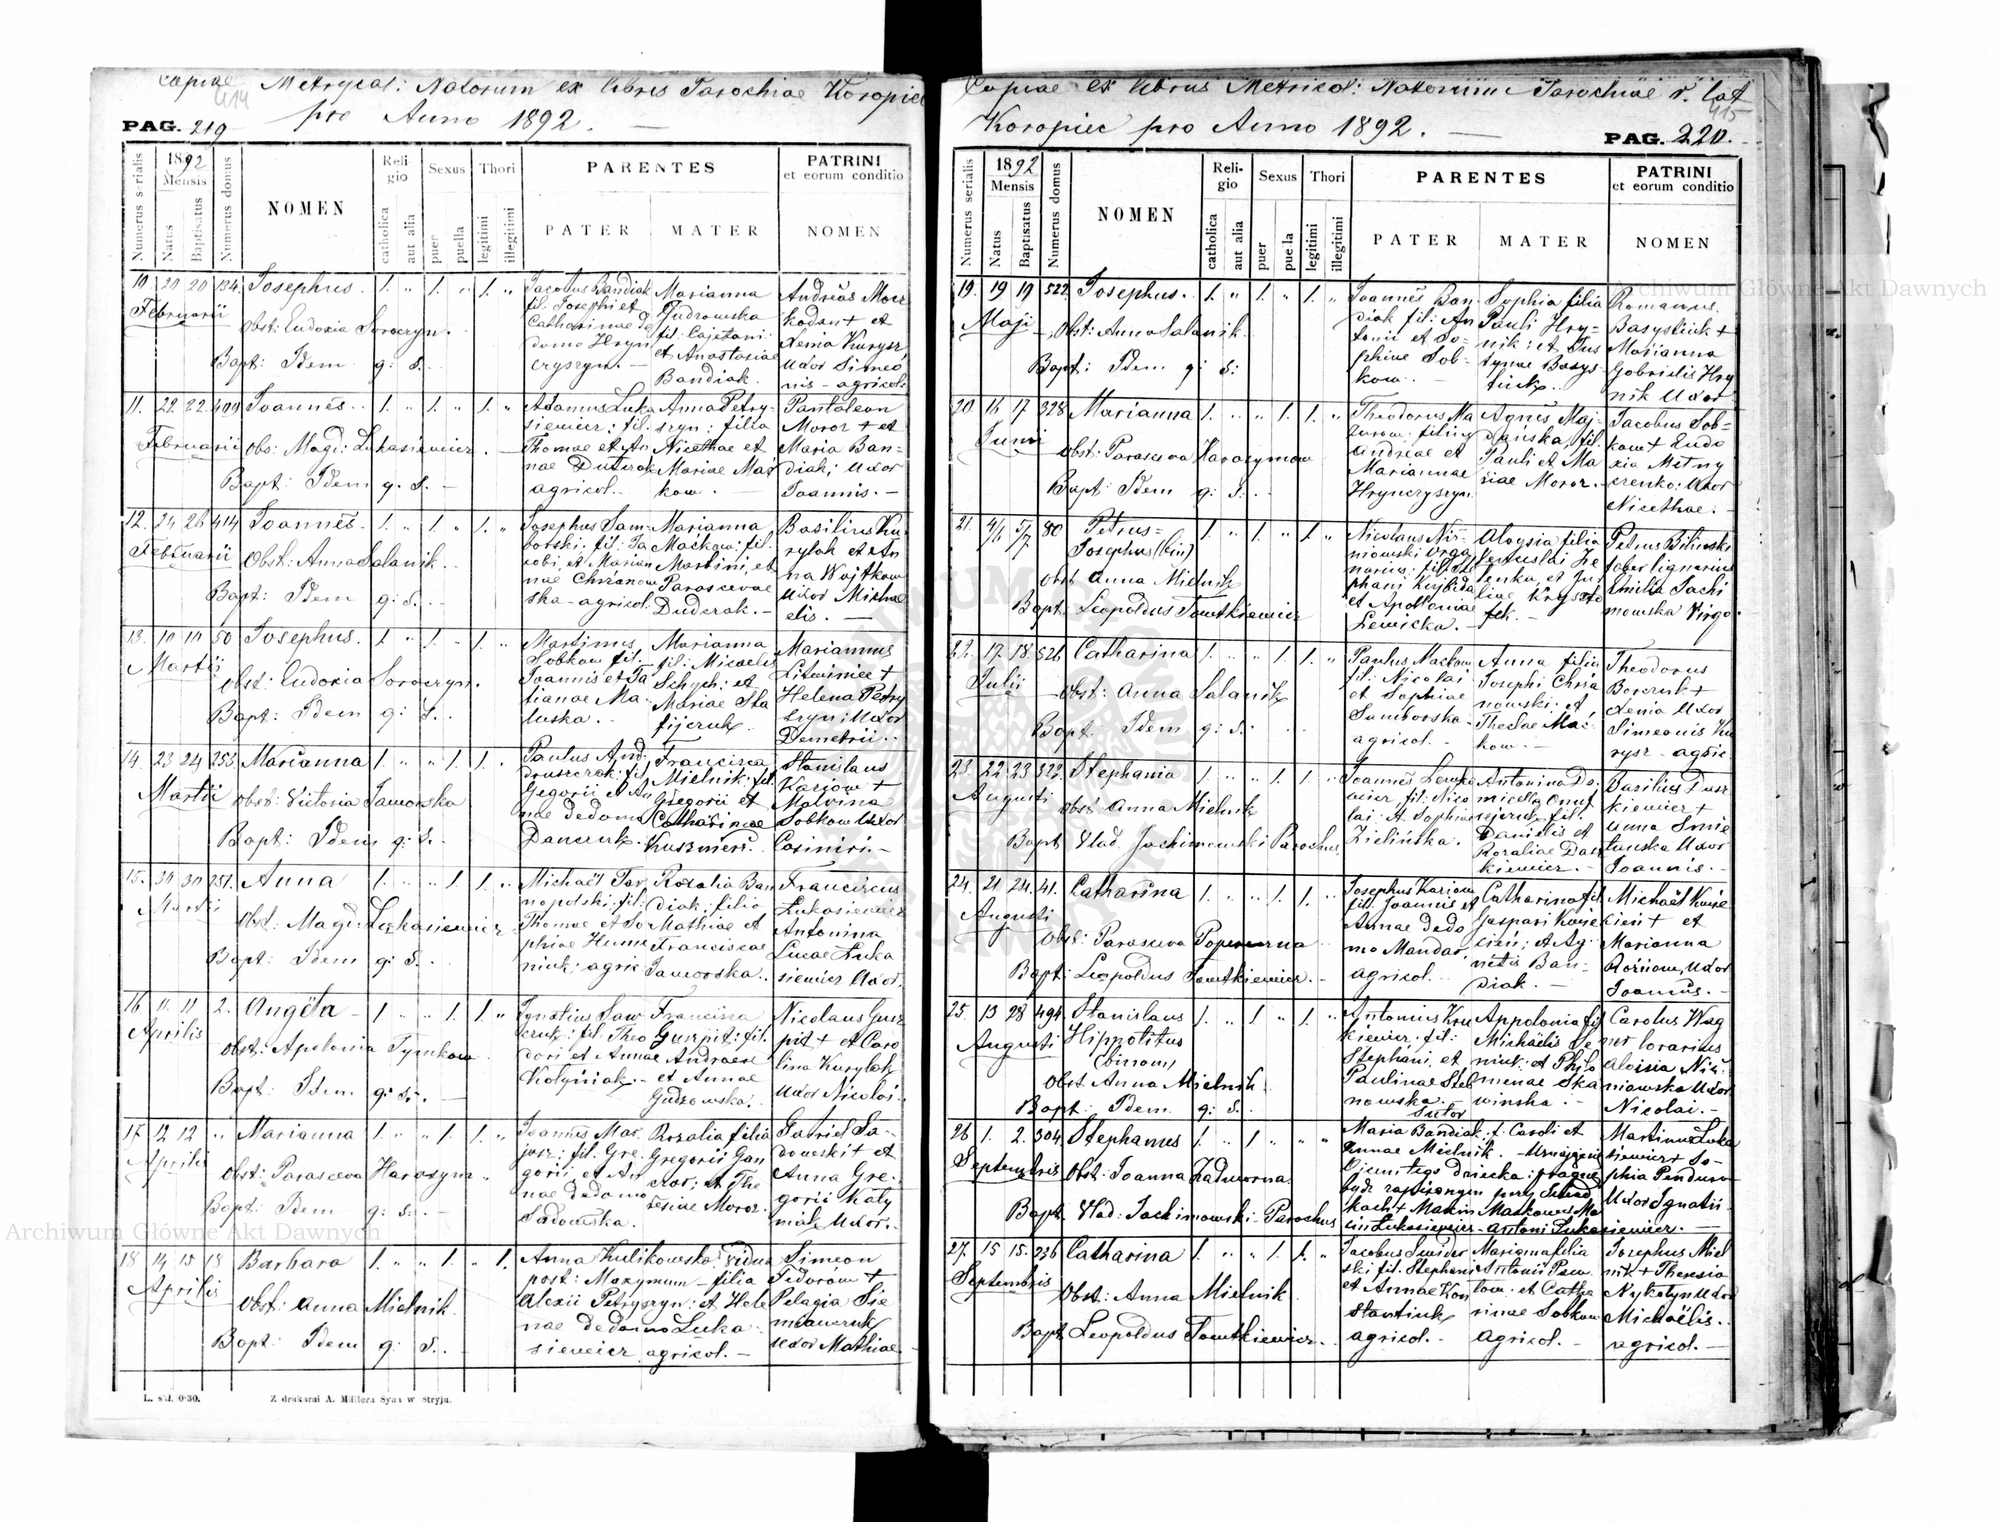 Copiae Metrycal: Natorum ex libris Parochiae Koropiec
414
pro Anno 1892.
PAG. 219
Numerus serialis
1892
Mensis
Natus
Baptisatus
Numerus domus
NOMEN
Religio
catholica
aut alia
Sexus
puer
puella
Thori
legitimi
illegitimi
PARENTES
PATER
MATER
PATRINI
et eorum conditio
NOMEN
10. 20 20 134 Josephus. 1. " 1. " 1. "
Februarii
Obst: Eudoxia Soroczyn.
Bapt: Idem g: S.
Jacobus Bandiak
fil: Josephi et
Catharinae de
domo Hryn
cryszyn.
Marianna
Gudzowska
fil: Cajetani
et Anastasiae
Bandiak.
Andreas Moez
kodan + et
Xenia Kurysz
Uxor Simeo
nis - agricol:
11. 22. 22. 409 Joannes. 1. " 1. " 1. "
Februarii
Obs: Magd: Lukasiewicz.
Bapt: Idem g. S.
Adamus Luka
siewicz: fil:
Thomae et An
nae Duterak
agricol.
Anna Petry-
szyn: filia
Nicethae et
Mariae Mać
kow.
Pantaleon
Moroz + et
Maria Ban=
diak; Uxor
Joannis.
12. 24 26 414 Joannes. 1. " 1. " 1. "
Februarii
Obst: Anna Salanik.
Bapt: Idem g: S.
Josephus Sam-
borski: fil: Ja
cobi, et Marian
nae Chrzanow
ska - agricol.
Marianna
Maćkow: fil.
Martini, et
Parascevae
Duderak.
Basilius Ku
rylak et An
na Wojtkow
Uxor Micha
elis.
13. 10 10 50 Josephus. 1. " 1. " 1. "
Martii
Obst: Eudoxia Soroczyn.
Bapt: Idem g: S.
Martinus
Sobkow fil.
Joannis et Ta
tianae Ma
luska.
Marianna
fil: Micaelis
Schych: et
Mariae Sta
fijczuk
Mariannus
Litwiniec +
Helena Petry
szyn; Uxor
Demetrii.
14. 23 24 253 Marianna 1. " " 1. 1. "
Martii
Obst: Victoria Jaworska
Bapt: Idem g: S.
Paulus And
druszczak: fil
Gregorii et An
nae dedomo
Danczuk.
Francisca
Mielnik: fil.
Gregorii et
Catharinae
Kuszneri.
Stanislaus
Karjow +
Malvina
Sobkow Uxor
Casimiri.
15. 30 30 251. Anna 1. " " 1. 1. "
Martii
Obst: Magd: Lukasiewicz
Bapt: Idem g: S.
Michaël Tar
nopolski: fil:
Thomae et So
phiae Hume
niuk: agric
Rozalia Ban
diak: filia
Mathiae et
Franciscae
Jaworska.
Franciscus
Lukasiewicz
Antonina
Lucae Luka
siewicz Uxor.
16 11 11 2. Angela 1 " " 1. 1. "
Aprilis
Obst: Apolonia Tymkow
Bapt: Idem g: S.
Ignatius Saw
czuk: fil. Theo
dori et Annae
Kolyśniak.
Francisca
Guszpit: fil:
Andraeae
et Annae
Gudzowska.
Nicolaus Gusz
pit + et Caro
lina Kurylak
Uxor Nicolai.
17 12 12 " Marianna 1. " " 1. 1. "
Aprilis
Obst: Parasceva Harasym
Bapt: Idem g: S.
Joannes Maz
jasz: fil: Gre
gorii et An
nae dedomo
Sadowska.
Rozalia filia
Gregorii Gon
czar; et The
resiae Moroz.
Gabriel Sa-
dowski + et
Anna Gre-
gorii Katy
niak Uxor.
18 14 15 18 Barbara 1. " " 1. " 1.
Aprilis
Obst: Anna Mielnik.
Bapt: Idem g: S.
Anna Kulikowska Vidua
post: Maxymum - filia
Alexii Petryszyn: et Hele
nae dedomo Luka
siewicz agricol.
Simeon
Fedorow +
Pelagia Sie
mianczuk
Uxor Mathiae
L. skł. 0·30.
Z drukarni A. Müllera Syna w Stryju.
Copiae ex libris Metrical: Natorum Parochiae r. lat
415
Koropiec pro Anno 1892.
PAG. 220.
Numerus serialis
1892
Mensis
Natus
Baptisatus
Numerus domus
NOMEN
Religio
catholica
aut alia
Sexus
puer
puella
Thori
legitimi
illegitimi
PARENTES
PATER
MATER
PATRINI
et eorum conditio
NOMEN
19. 19 19 522. Josephus. 1. " 1. " 1. "
Maji
Obst: Anna Salanik.
Bapt: Idem g: S:
Joannes Ban
diak fil: An
tonii et So-
phiae Sob-
kow.
Sophia filia
Pauli Hry-
nik: et Jus
tynae Basys
tiuk.
Romanus
Basystiuk +
Marianna
Gabrielis Hry
nik Uxor
20 16 17 328 Marianna 1. " " 1. 1. "
Junii
Obst: Parasceva Harasymow
Bapt: Idem g: S:
Theodorus Ma
zurow: filius
Andreae et
Mariannae
Hryncryszyn.
Agnes Maj-
danska, fil.
Pauli et Ma
riae Moroz.
Jacobus Sob-
kow + Eudo
xia Metny
czenko: Uxor
Nicethae.
21. 4/6 5/7 80 Petrus=
Josephus (bin)
Obst Anna Mielnik
Bapt: Leopoldus Towtkiewicz
Nicolaus Niż-
niowski Orga
narius: fil: Ste
phani Kujbida
et Apoloniae
Lewicka.
Aloysia filia
Venceslai Ze
lenka, et Ju
liae Krysto
fek.
Petrus Biliński
faber lignarius
Emilia Jachi
mowska Virgo.
22. 17 18. 526 Catharina 1. " " 1. 1. "
Julii
Obst: Anna Salanik
Bapt: Idem g: S:
Paulus Maćkow
fil: Nicolai
et Sophiae
Samborska
agricol.
Anna filia
Josephi Chrza
nowski: et
Theclae Mać-
kow.
Theodorus
Borczuk +
Xenia Uxor
Simeonis Ku
rysz - agric
23. 22 23 522. Stephania 1. " " 1. 1. "
Augusti
Obst: Anna Mielnik
Bapt Vlad. Jachimowski Parochus.
Joannes Lewko
wicz, fil: Nico
lai: et Sophiae
Zielińska.
Antonina Do-
micella Onuf
rejczuk fil.
Danielis et
Rozaliae Dasz
kiewicz.
Basilius Dasz
kiewicz +
Anna Smie
tanska Uxor
Joannis.
24. 21 24. 41. Catharina 1. " " 1. 1. "
Augusti
Obst: Parasceva Popowiczna
Bapt: Leopoldus Towtkiewicz.
Josephus Karjow
fil. Joannis et
Annae dedo
mo Mandar,
agricol.
Catharina fil
Gaspari Kwie
cień; et Ag-
netis Ban-
diak.
Michaël Kwie
cień + et
Marianna
Roźniow, Uxor
Joannis.
25. 13 28 494. Stanislaus 1. " 1. " 1. "
Augusti
Hippolitus
(binom)
Obst Anna Mielnik.
Bapt: Idem g: S:
Antonius Kru
kiewicz; fil:
Stephani, et
Paulinae Stel
nowska.
Sutor
Appolonia fil
Michaëlis Se
niuk: et Philo
menae Ska
winska.
Carolus Wag
ner lorarius
Aloisia Niż-
niowska Uxor
Nicolai.
26 1. 2. 304 Stephanus 1. " 1 " " "
Septembris
Obst: Joanna Zadworna
Bapt. Vlad: Jachimowski: Parochus
Maria Bandiak: f: Caroli et
Annae Mielnik. - Uznajęsię
Ojcem tego dziecka: i pragnę
być zapisanym przy świad
kach + Maxim Maćkow + Ma
cin Lukasiewicz - Antoni Lukasiewicz.
Martinus Luka
siewicz + So-
phia Panduro-
Uxor Ignatii
27. 15 15. 236 Catharina 1. " " 1. 1. "
Septembris
Obst: Anna Mielnik.
Bapt Leopoldus Towtkiewicz.
Jacobus Swider
ski fil. Stephani
et Annae Kon
stantiuk
agricol.
Marianna filia
Antonii Paw
low: et Catha
rinae Sobkow
agricol.
Josephus Miel
nik + Theresia
Nykolyn Uxor
Michaëlis.
agricol.
Archiwum Główne Akt Dawnych
Archiwum Główne Akt Dawnych